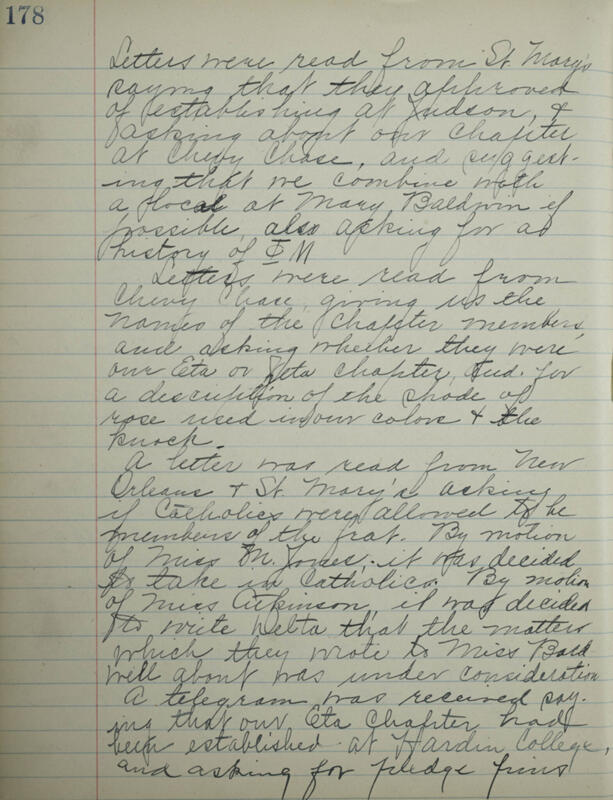 178
Letters were read from St. Mary's
saying that they approved
of establishing at Judson, &
asking about our Chapter
at Chevy Chase, and suggest-
ing that we combine with
a local at Mary Baldwin if
possible, also asking for a
history of ΦM
Letters were read from
Chevy Chase, giving us the
names of the Chapter members,
and asking whether they were
our Eta or Zeta Chapter, and for
a description of the shade of
rose used in our colors & the
knock.
A letter was read from New
Orleans & St. Mary's asking
if Catholics were allowed to be
members of the frat. By motion
of Miss M. Jones, it was decided
to take in Catholics. By motion
of Miss Atkinson, it was decided
to write Delta that the matters
which they wrote to Miss Bald
well about was under consideration
A telegram was received say-
ing that our Eta Chapter had
been established at Hardin College,
and asking for pledge pins